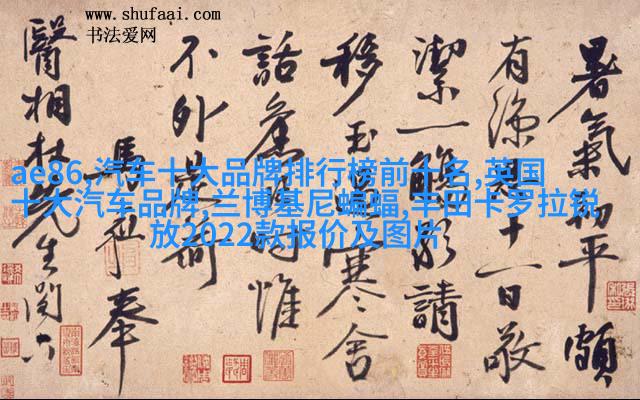 www.shufaai.com
书法爱网
ae86,汽车十大品牌排行榜前十名,英国
十大汽车品牌,兰博基尼蝙蝠,丰田卡罗拉锐
放2022款报价及图片
暑氣初平頗
有涼十一日敬
潔一請
移玉寒舍
話舊惟
不外是荷
馬奉
醫相杜先生閣下